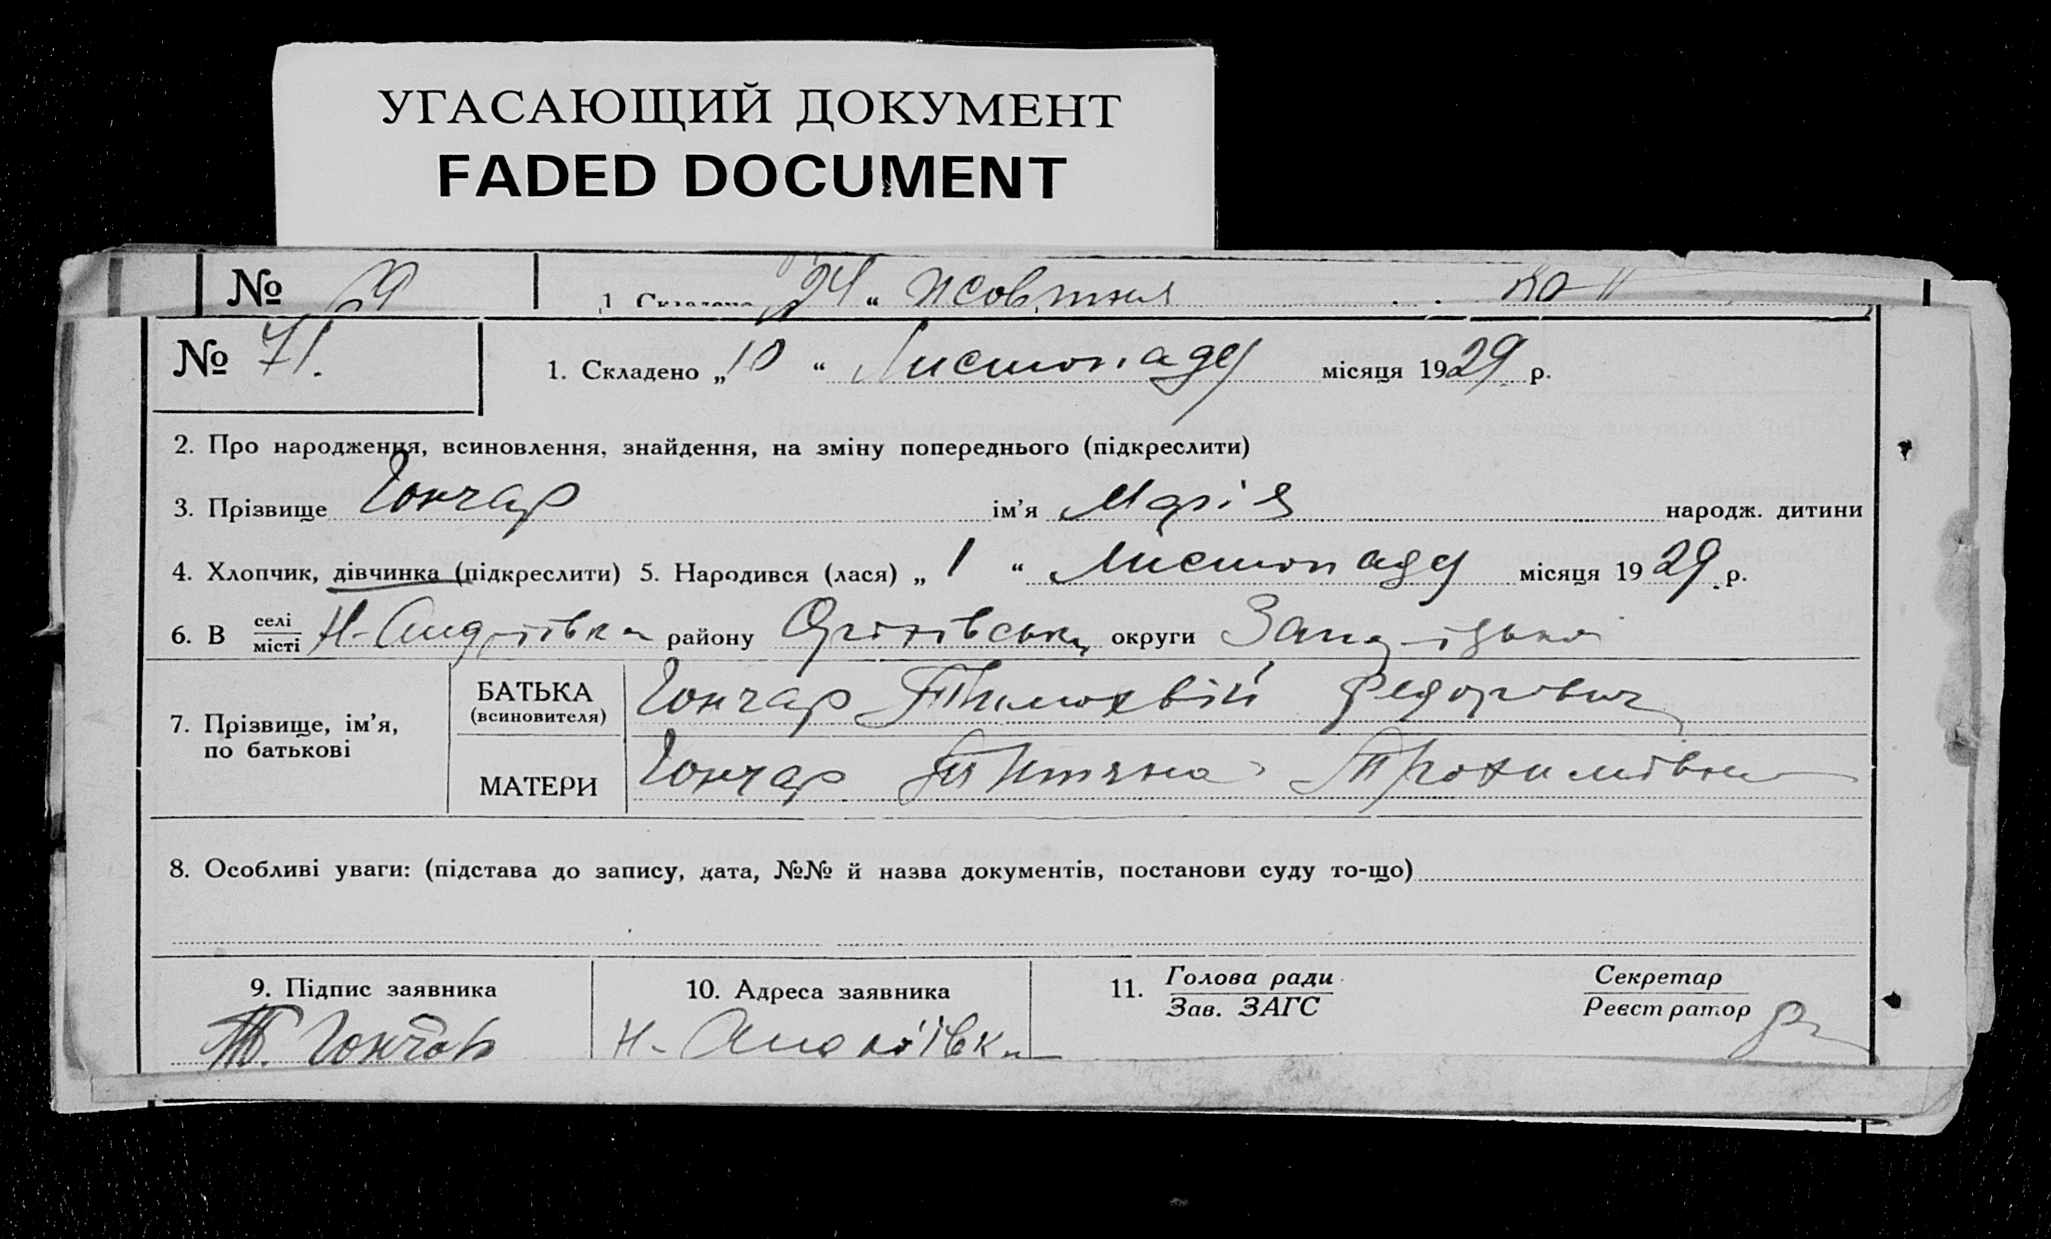 УГАСАЮЩИЙ ДОКУМЕНТ
FADED DOCUMENT
№ 69 1. Складено „24“ жовтня
№ 71. 1. Складено „10“ Листопаду місяця 1929 р.
2. Про народження, всиновлення, знайдення, на зміну попереднього (підкреслити)
3. Прізвище Гончар ім'я Марія народж. дитини
4. Хлопчик, дівчинка (підкреслити) 5. Народився (лася) „1“ Листопаду місяця 1929 р.
6. В селі/місті Н- району Оріхівськ округи
7. Прізвище, ім'я, по батькові
БАТЬКА (всиновителя) Гончар Тимохвій Федорович
МАТЕРИ Гончар Титяна Трохимівна
8. Особливі уваги: (підстава до запису, дата, №№ й назва документів, постанови суду то-що)
9. Підпис заявника 10. Адреса заявника 11. Голова ради/Зав. ЗАГС Секретар/Реєстратор
Т. Гончар Н-